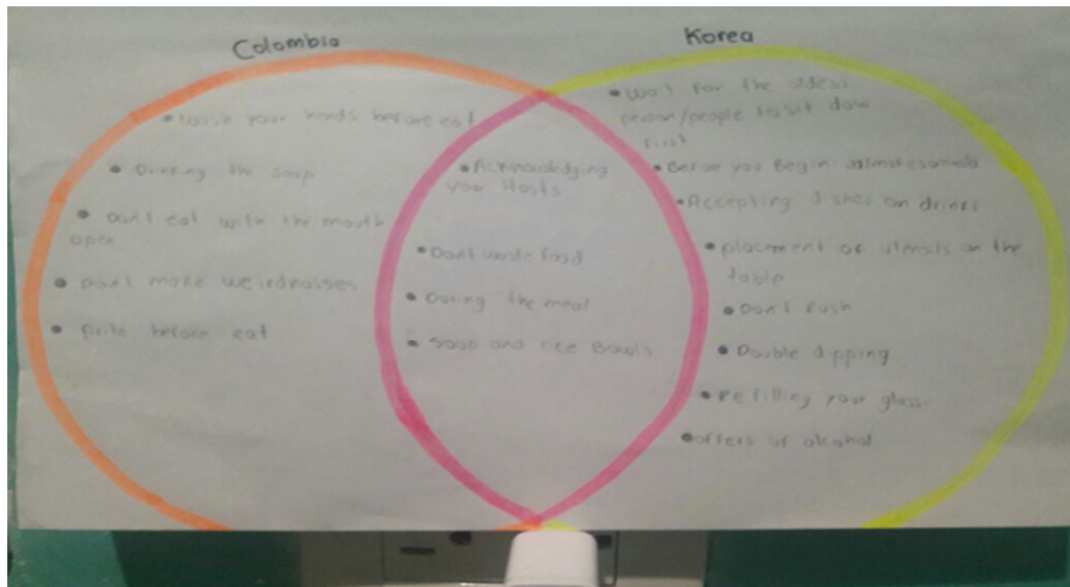 Colombia
• Wash your hands before eat
• Drinking the soup
• Don't eat with the mouth
open
• Don't make weird noises
• before eat
• Acknowledging
your Hosts
• Don't waste food
• During the meal
• Soup and rice Bowls
Korea
• Wait for the oldest
person/people to sit dow
First
• Before you Begin
• Accepting on drinks
• placement of utensils on the
table
• Don't Rush
• Double dipping
• Refilling your glass
• offers of alcohol